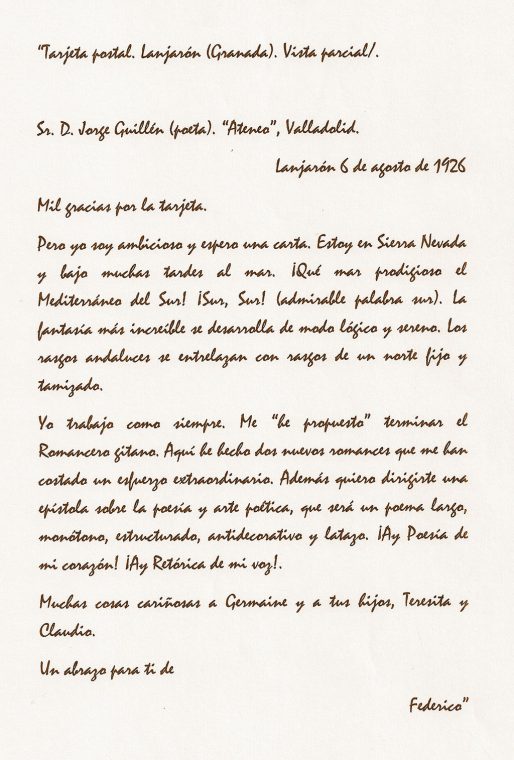 "Tarjeta postal. Lanjarón (Granada). Vista parcial/.
Sr. D. Jorge Guillén (poeta). "Ateneo", Valladolid.
Lanjarón 6 de agosto de 1926
Mil gracias por la tarjeta.
Pero yo soy ambicioso y espero una carta. Estoy en Sierra Nevada
y bajo muchas tardes al mar. ¡Qué mar prodigioso el
Mediterráneo del Sur! ¡Sur, Sur! (admirable palabra sur). La
fantasía más increíble se desarrolla de modo lógico y sereno. Los
rasgos andaluces se entrelazan con rasgos de un norte fijo y
tamizado.
Yo trabajo como siempre. Me "he propuesto" terminar el
Romancero gitano. Aquí he hecho dos nuevos romances que me han
costado un esfuerzo extraordinario. Además quiero dirigirte una
epístola sobre la poesía y arte poética, que será un poema largo,
monótono, estructurado, antidecorativo y latazo. ¡Ay Poesía de
mi corazón! ¡Ay Retórica de mi voz!.
Muchas cosas cariñosas a Germaine y a tus hijos, Teresita y
Claudio.
Un abrazo para ti de
Federico"